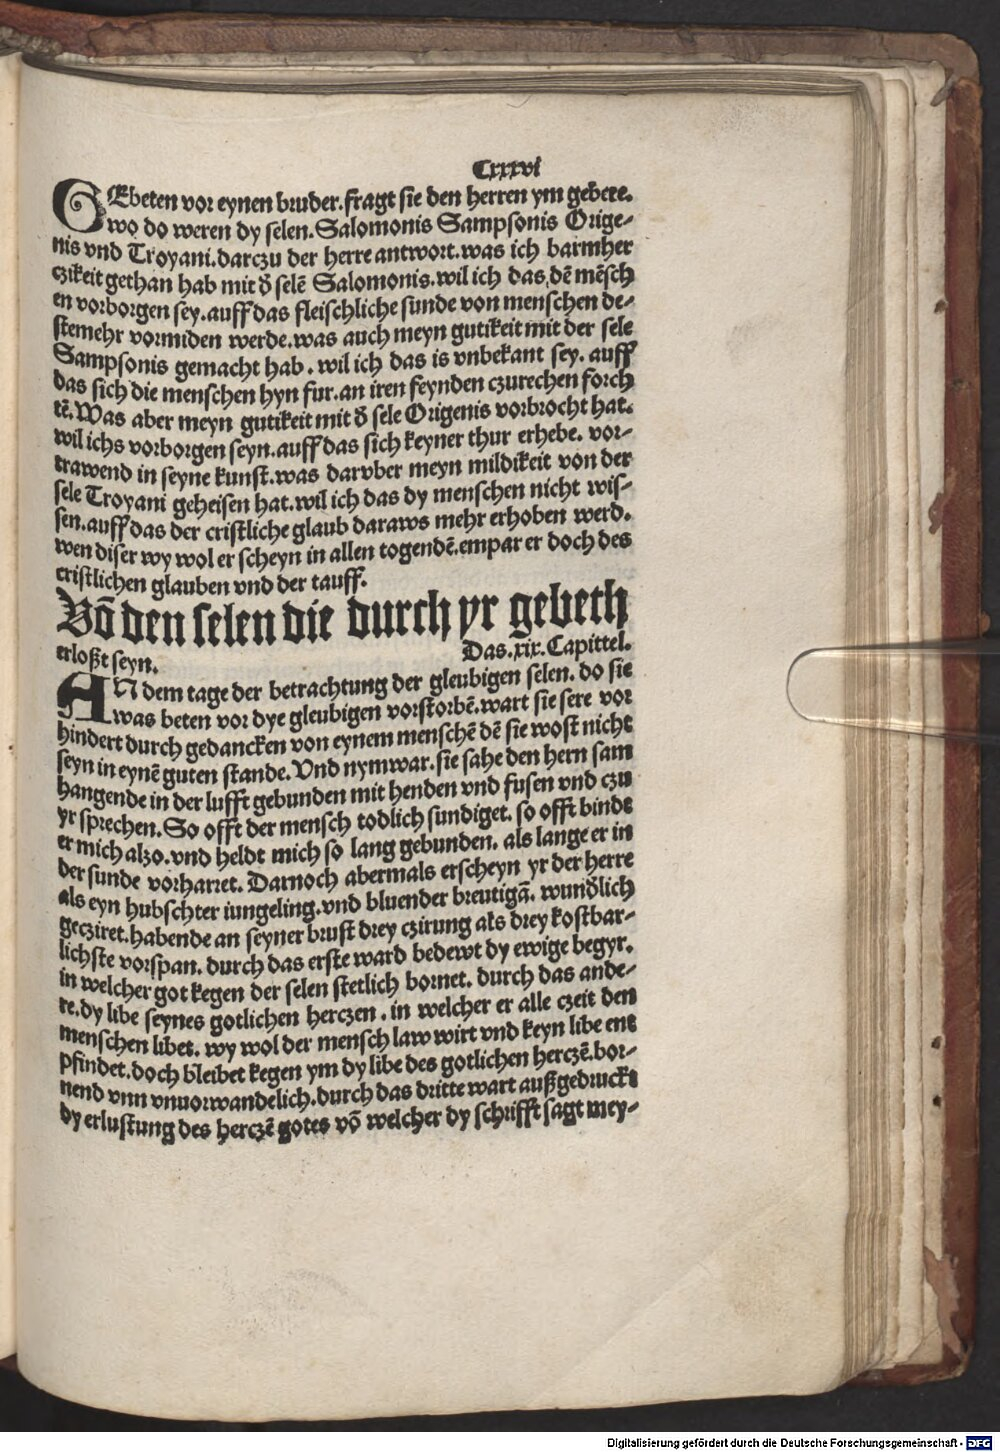 Cxxxvi
GEbeten vor eynen bruder. fragt sie den herren ym gebete.
wo do weren dy selen. Salomonis Sampsonis Orige-
nis vnd Troyani. darczu der herre antwort. was ich barmher
czikeit gethan hab mit d̕ selē Salomonis. wil ich das dē mēsch
en vorborgen sey. auff das fleischliche sunde von menschen de-
stemehr vormiden werde. was auch meyn gutikeit mit der sele
Sampsonis gemacht hab. wil ich das is vnbekant sey. auff
das sich die menschen hyn fur. an iren feynden czurechen forch
tē. Was aber meyn gutikeit mit d̕ sele Origenis vorbrocht hat.
wil ichs vorborgen seyn. auff das sich keyner thur erhebe. vor-
trawend in seyne kunst. was darvber meyn mildikeit von der
sele Troyani geheisen hat. wil ich das dy menschen nicht wis-
sen. auff das der cristliche glaub daraws mehr erhoben werd.
wen diser wy wol er scheyn in allen togendē. empar er doch des
cristlichen glauben vnd der tauff.
Vō den selen die durch yr gebeth
erloßt seyn. Das. xix. Capittel.
AN dem tage der betrachtung der gleubigen selen. do sie
was beten vor dye gleubigen vorstorbē. wart sie sere vor
hindert durch gedancken von eynem menschē dē sie wost nicht
seyn in eynē guten stande. Vnd nymwar. sie sahe den hern sam
hangende in der lufft gebunden mit henden vnd fusen vnd czu
yr sprechen. So offt der mensch todlich sundiget. so offt binde
er mich alzo. vnd heldt mich so lang gebunden. als lange er in
der sunde vorharret. Darnoch abermals erscheyn yr der herre
als eyn hubschter iungeling. vnd bluender breutigā. wund̕lich
gecziret. habende an seyner brust drey czirung als drey kostbar-
lichste vorspan. durch das erste ward bedewt dy ewige begyr.
in welcher got kegen der selen stetlich bornet. durch das ande-
re. dy libe seynes gotlichen herczen. in welcher er alle czeit den
menschen libet. wy wol der mensch law wirt vnd keyn libe ent
pfindet. doch bleibet kegen ym dy libe des gotlichen herczē. bor-
nend vnn vnuorwandelich. durch das dritte wart außgedruckt
dy erlustung des herczē gotes vō welcher dy schrifft sagt mey-
Digitalisierung gefördert durch die Deutsche Forschungsgemeinschaft - DFG